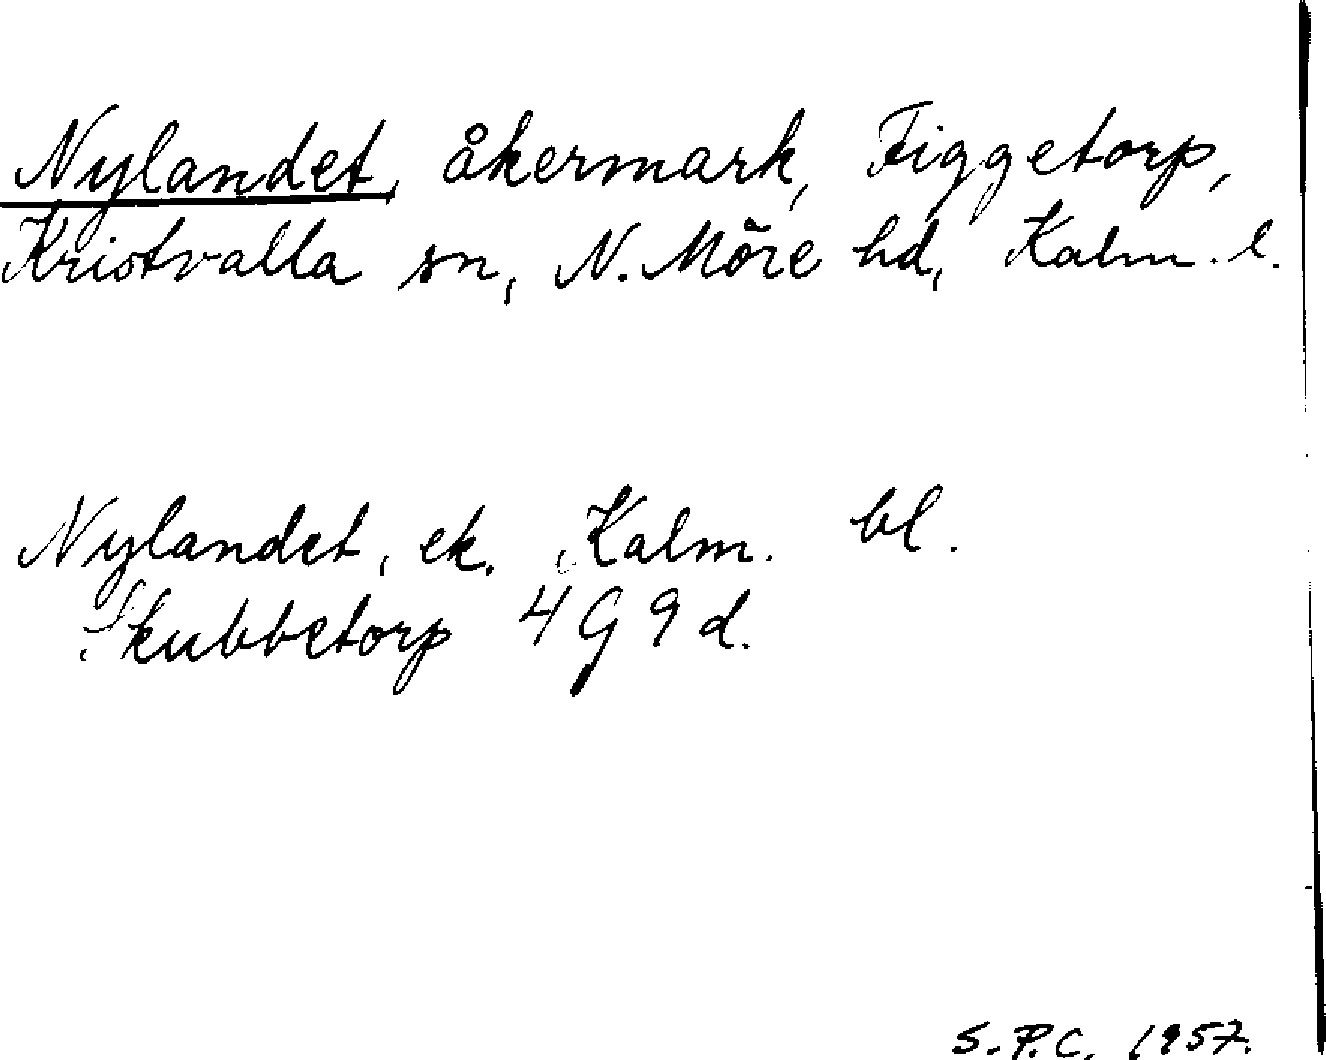 Nylandet, åkermark, Figgetorp,
Kristvalla sn, N. Möre hd, Kalm. l.
Nylandet, ek. Kalm. bl.
Skubbetorp 4G9d.
S.P.C. 1957.